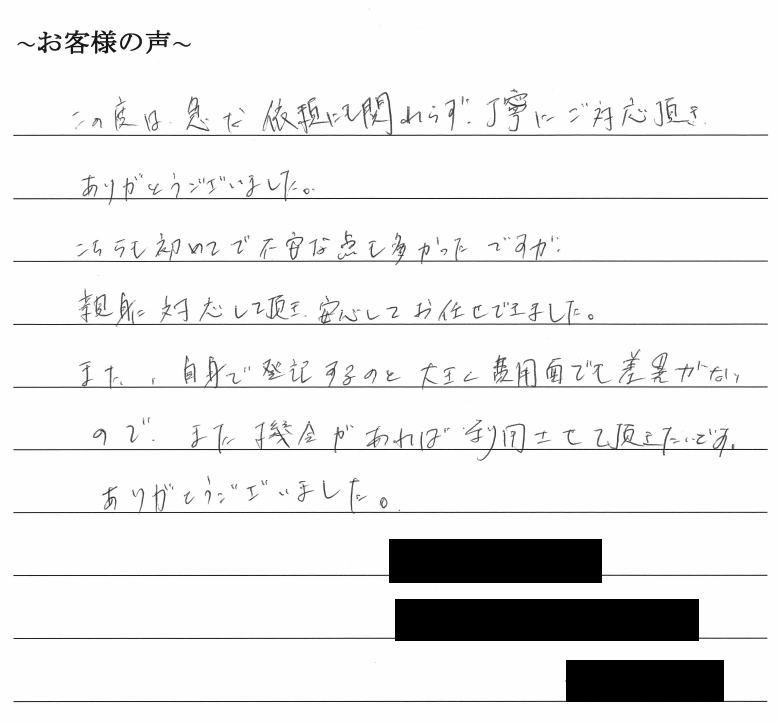 ～お客様の声～
この度は、急な依頼にも関わらず、丁寧にご対応頂き、
ありがとうございました。
こちらも初めてで不安な点も多かったですが、
親身に対応して頂き、安心してお任せできました。
また、自身で登記するのと大きく費用面でも差異がない
ので、また機会があれば利用させて頂きたいです。
ありがとうございました。